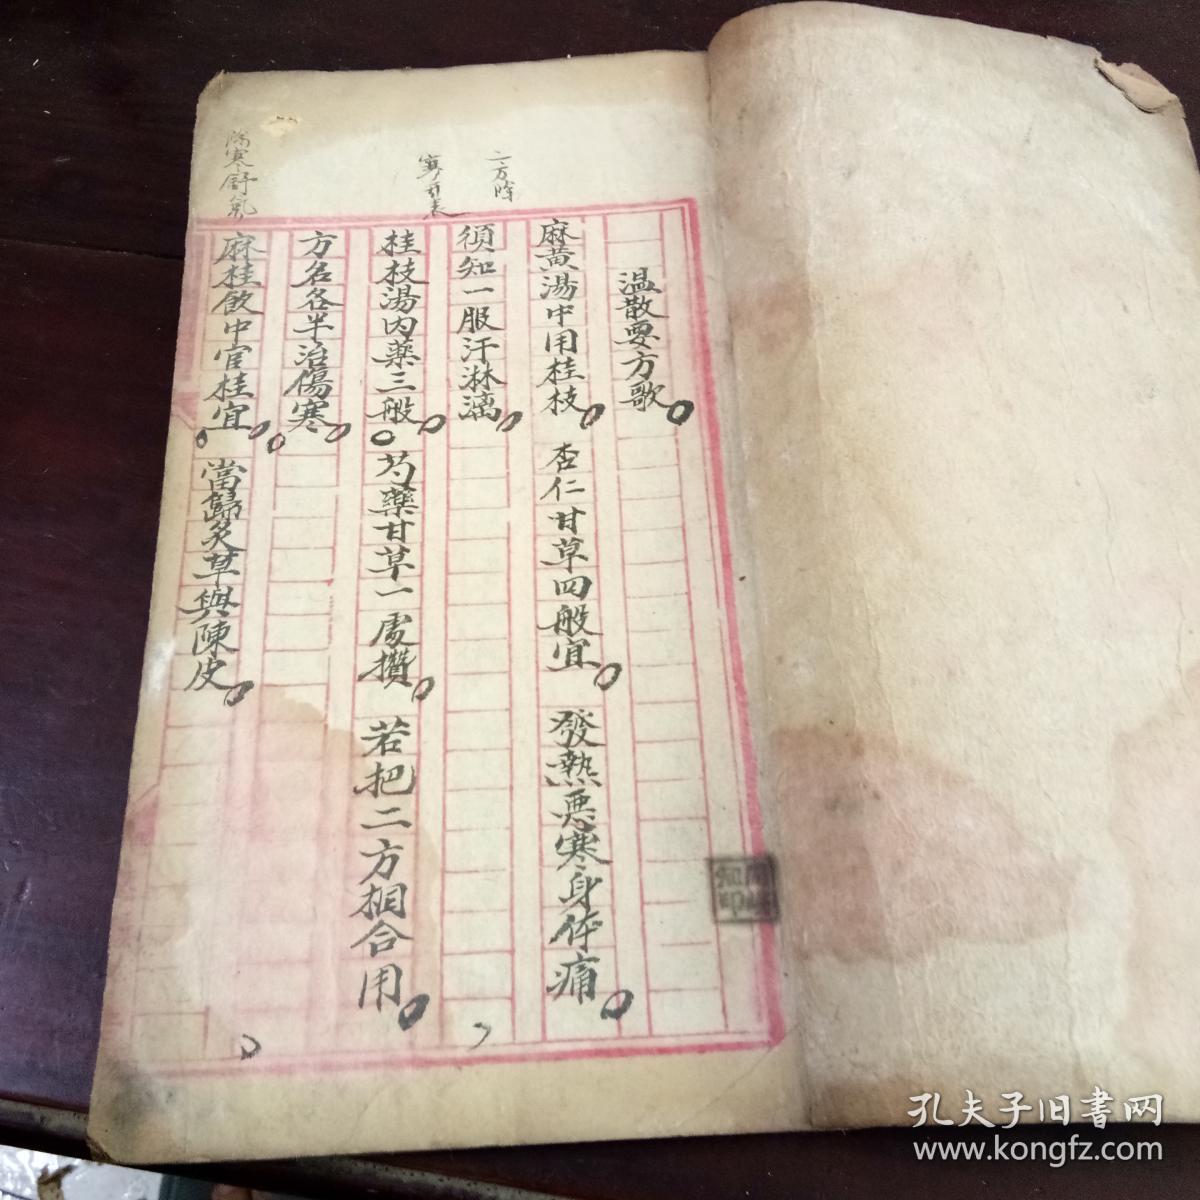 温散要方歌
麻黄湯中用桂枝 杏仁甘草四般宜 發熱悪寒身体痛
須知一服汗淋漓
桂枝湯内薬三般 芍藥甘草一處攢 若把二方相合用
方名各半治傷寒
麻桂飲中官桂宜 當歸炙草與陳皮
二方
寒
寒舒氣
孔夫子旧書网
www.kongfz.com